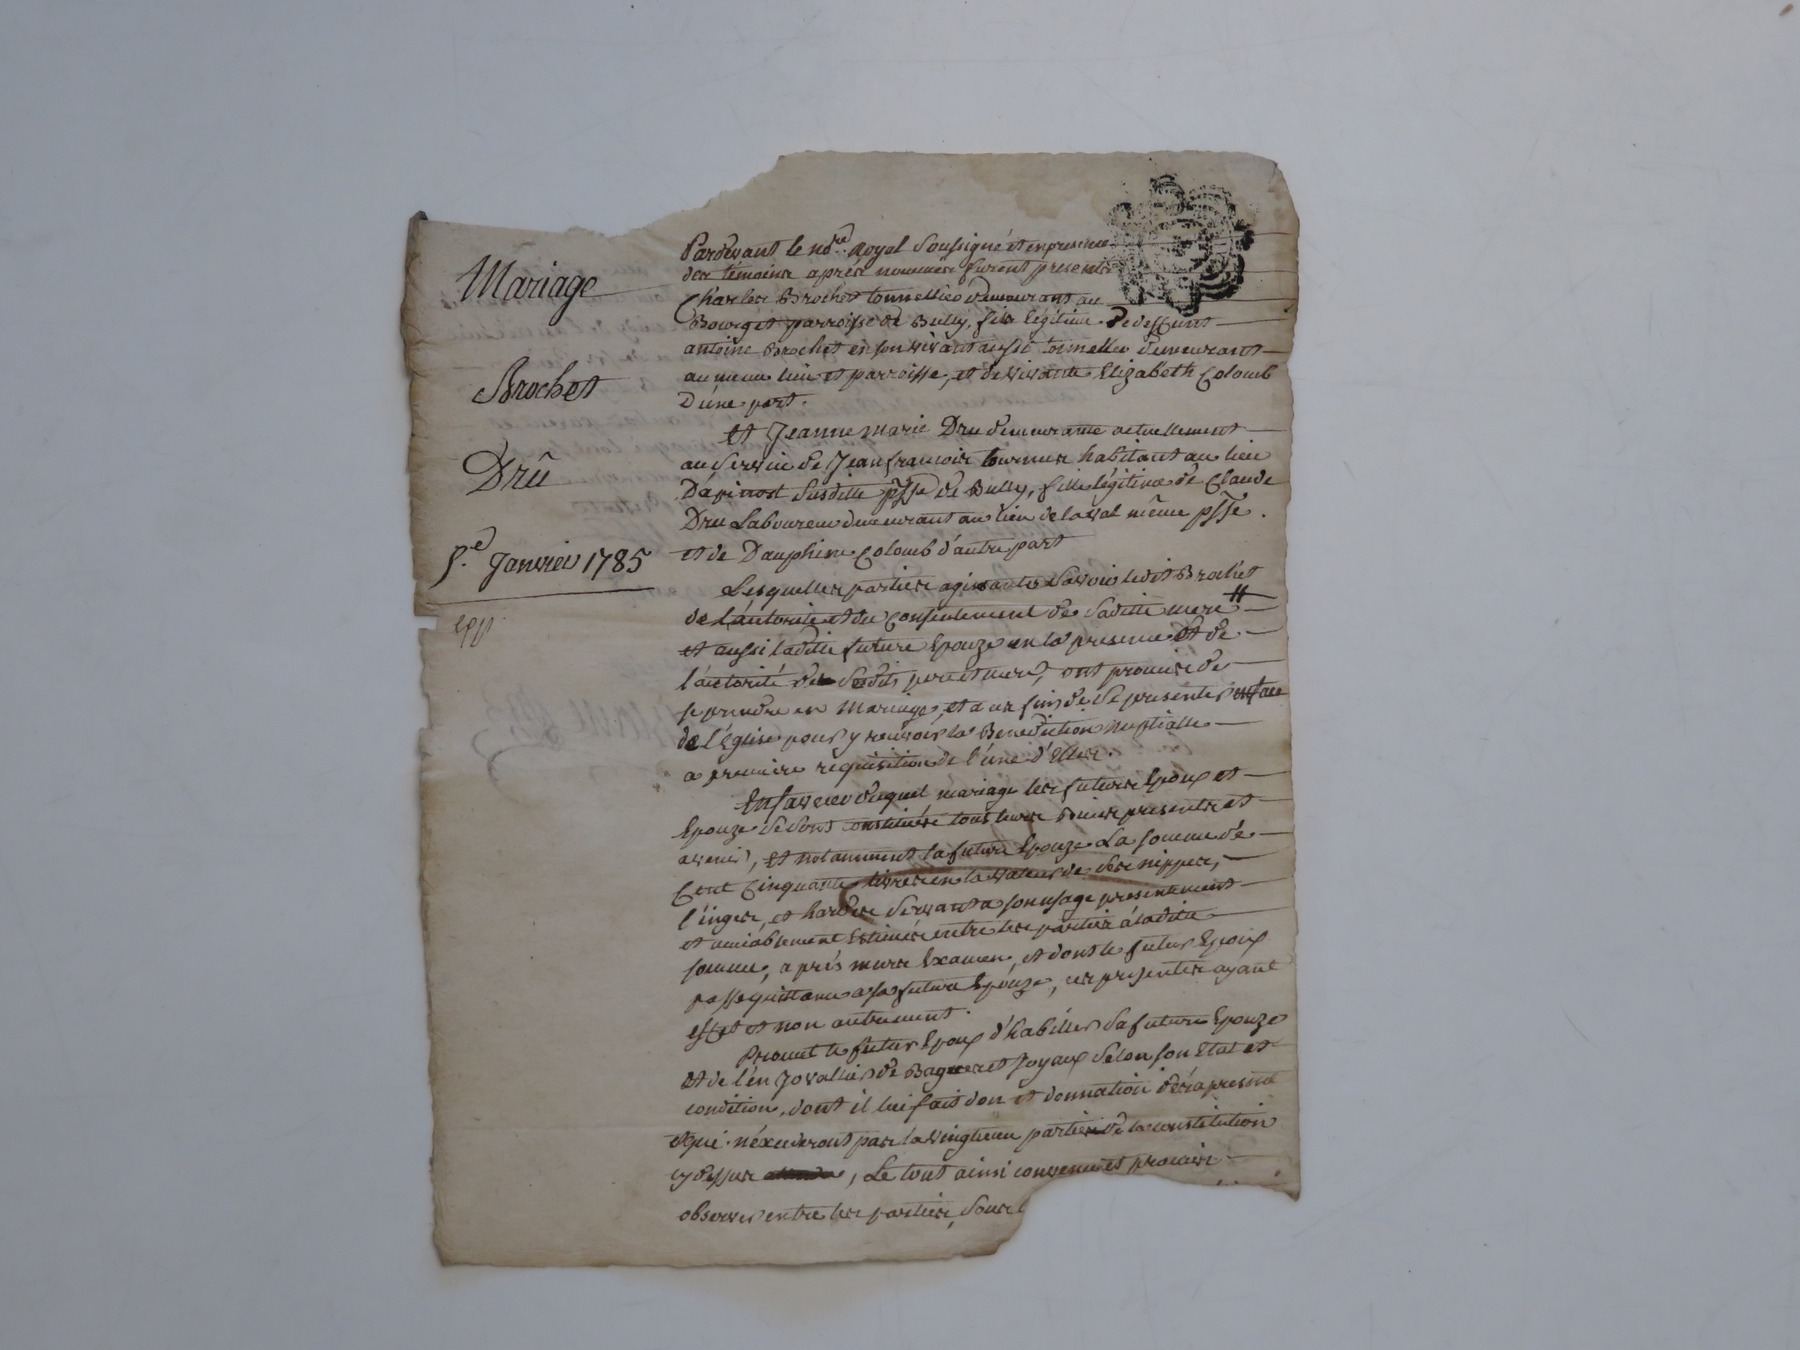 Mariage
Brochet
Dru
5.e Janvier 1785
Pardevant le no.re Royal soussigné et en presence
des témoins après nommés furent presents
Charles Brochet tonnellier demeurant au
Bourg et parroisse de Bully, fils légitime de deffunt
antoine Brochet en son vivant aussi tonnellier demeurant
au meme lieu et parroisse, et de vivante Elizabeth Colomb
D'une part.
et Jeanne marie Dru demeurante actuellement
au service de Jean francois habitant au lieu
susditte psse de Bully, fille légitime de Claude
Dru Laboureur demeurant au lieu de laval même psse.
et de Dauphine Colomb d'autre part
Lesquelles parties agissantes savoir ledit Brochet
de l'autorité et du consentement de saditte mere #
et aussi laditte future Epouze en la presence et de
l'autorité de sesdits pere et mere, ont promis de
se prendre en Mariage, et a ces fins de se presenter en face
de l'église pour y recevoir la Benediction Nuptialle
a premiere requisition de l'une d'Elles.
En faveur duquel mariage les futurs Epoux et
Epouze se sont constitués tous leurs Biens presents et
avenir, et notamment la future Epouze La somme de
Cent Cinquante livres en la valeur de ses nippes,
linges, et hardes servant a son usage presentement
et amiablement Estimés entre les parties à laditte
somme, après murs Examen, et dont le futur Epoux
passe quittance a sa future Epouze, ces presentes ayant
effet et non autrement.
Promet le futur Epoux d'habiller sa future Epouze
et de l'en Jovallier de Bagues et Joyaux selon son Etat et
condition, dont il lui fait don et donnation dès à present
et qui n'éxcederont pas la vingtieme partie de la constitution
cy dessus, Le tout ainsi convenu et promis
observer entre les parties, sous